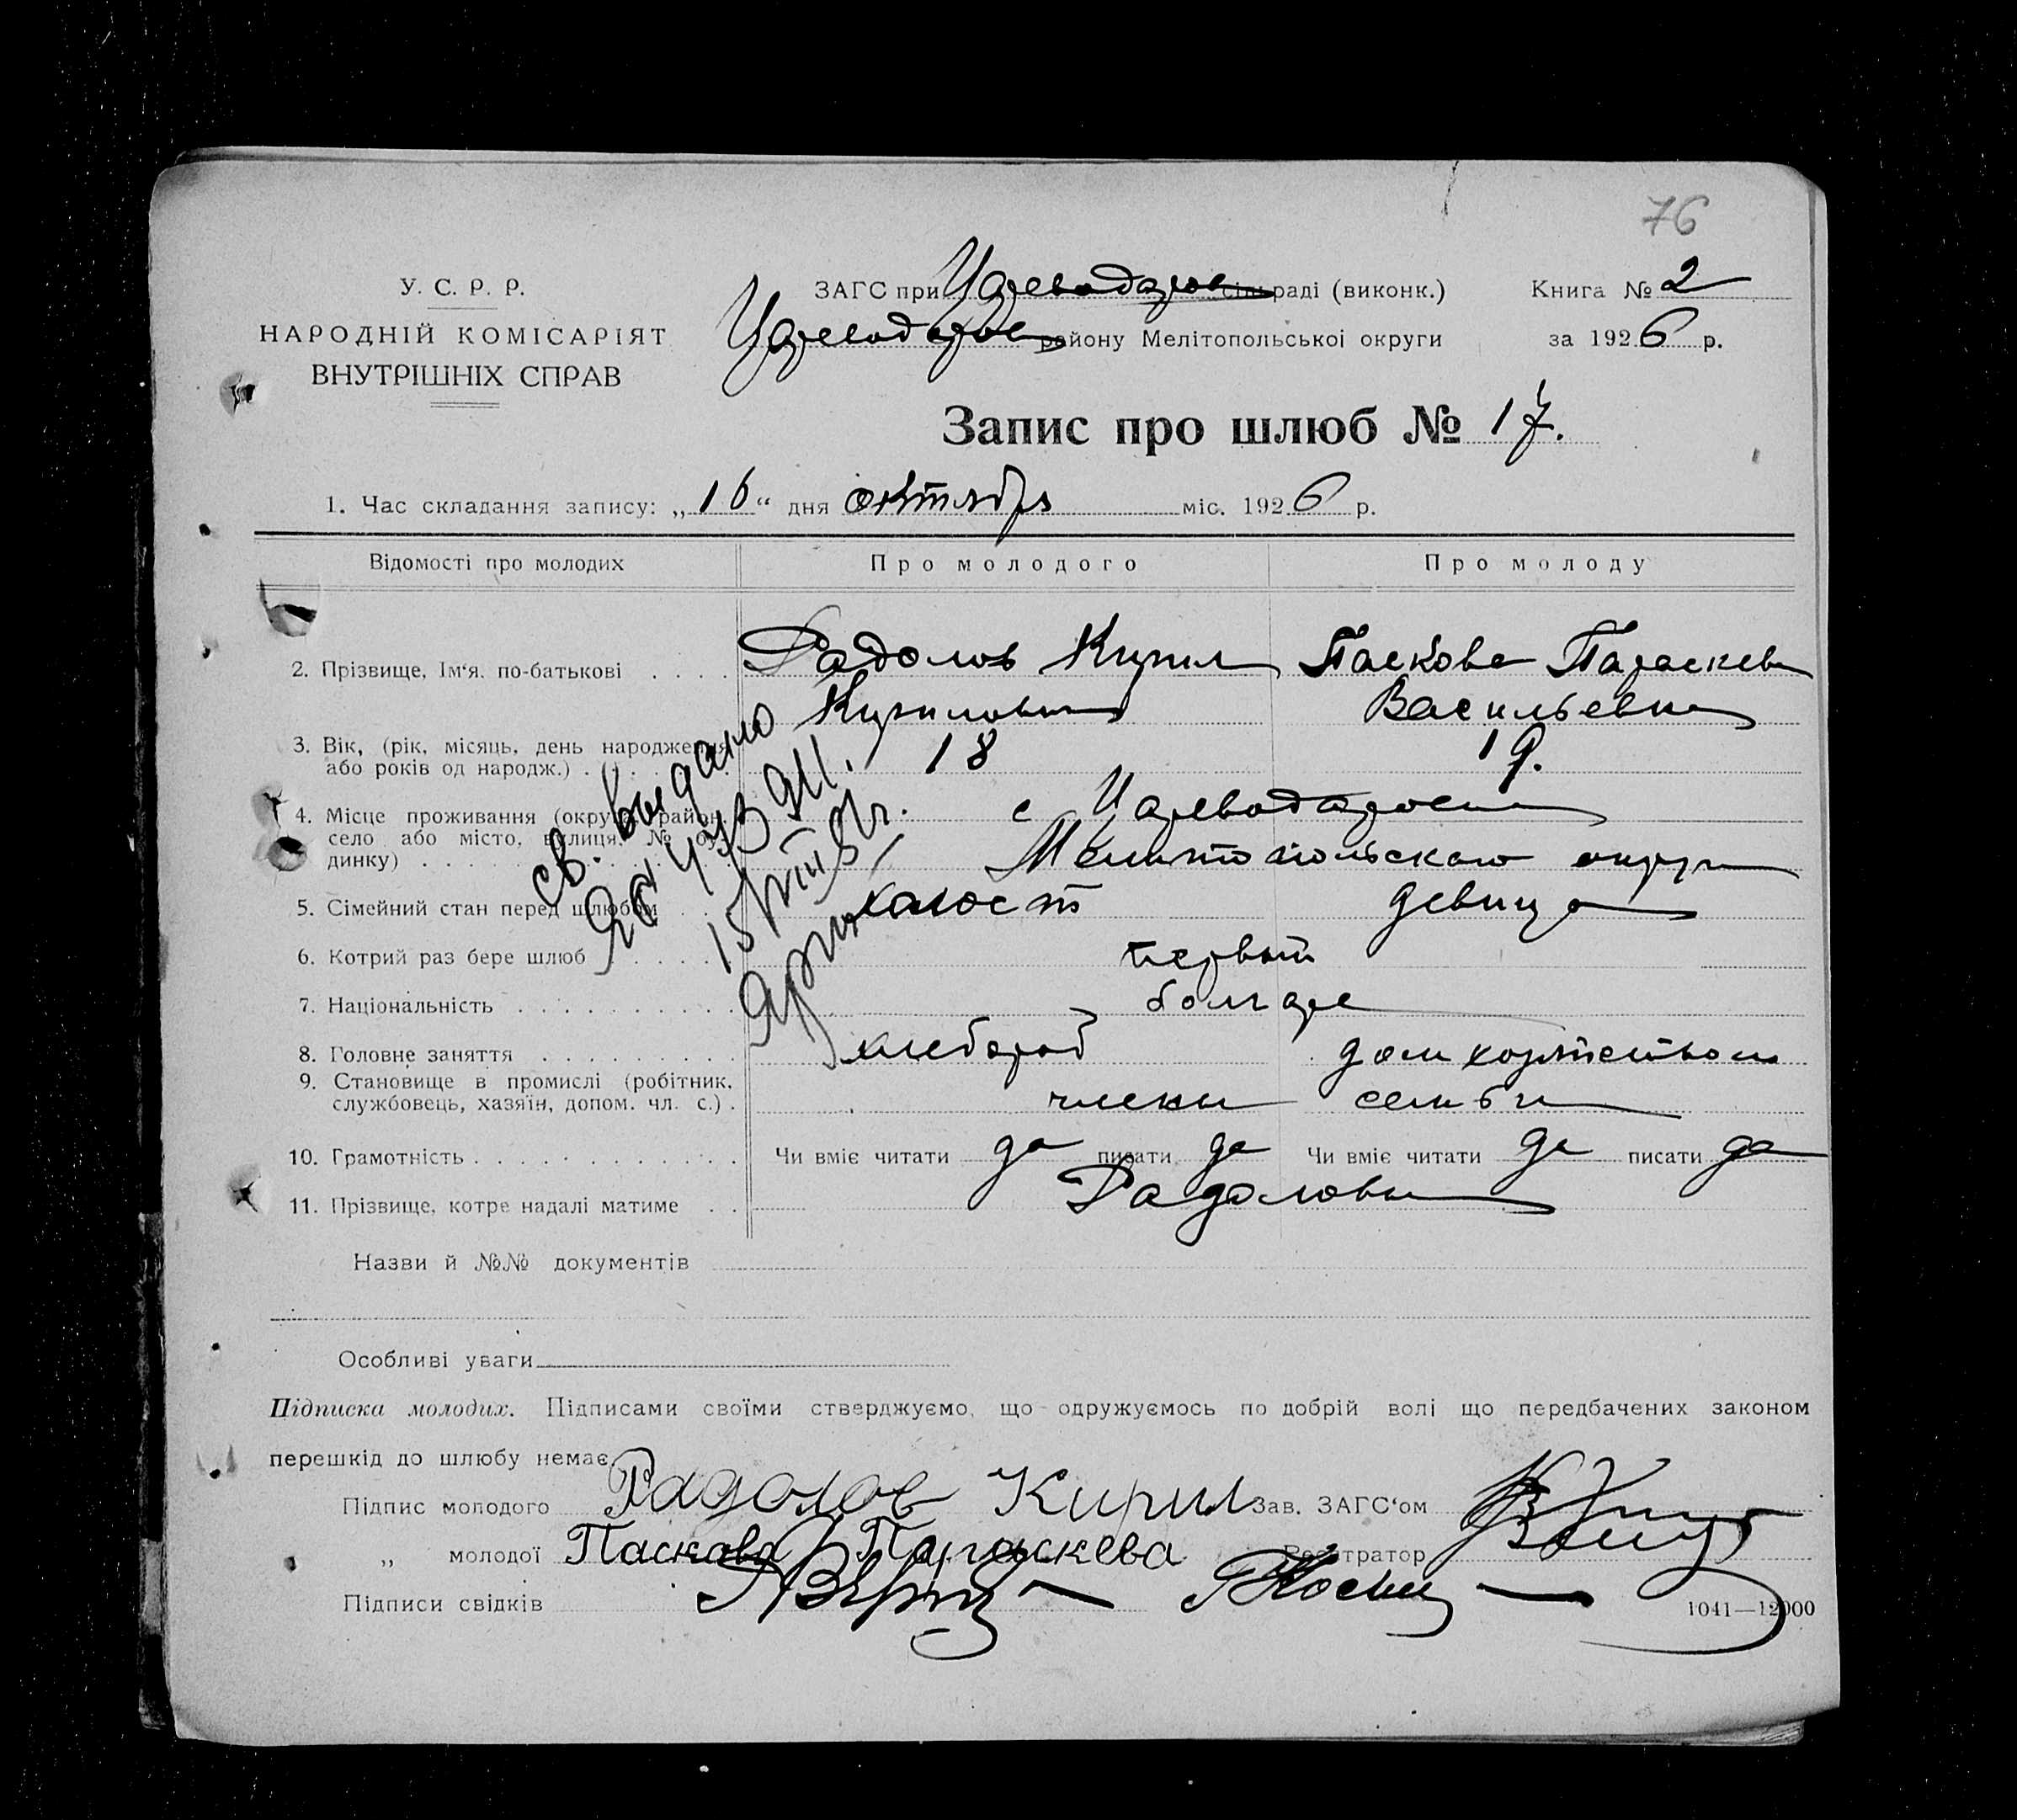 76
У. С. Р. Р.
НАРОДНІЙ КОМІСАРІЯТ
ВНУТРІШНІХ СПРАВ
ЗАГС при Царевода́ров сільраді (виконк.)
району Мелітопольської округи
Книга № 2
за 1926 р.
Запис про шлюб № 17.
1. Час складання запису: „16“ дня октября міс. 1926 р.
Відомості про молодих Про молодого Про молоду
2. Прізвище, Ім‘я, по-батькові . . . . Радолов Кирил Паскова Параскева
Кирилович Васильевна
3. Вік, (рік, місяць, день народження
або років од народж.) . 18 19.
4. Місце проживання (округа, район,
село або місто, вулиця, № бу-
динку) . . . с Мелитопольского округа
5. Сімейний стан перед шлюбом . . холост девица
6. Котрий раз бере шлюб . . . . первый
7. Національність . . . . . . . . . . болгаре
8. Головне заняття . . . . . . . . . хлебороб дом хозяйством
9. Становище в промислі (робітник,
службовець, хазяїн, допом. чл. с.) . члены семьи
10. Грамотність . . . . . . . . . . . . Чи вміє читати да писати да Чи вміє читати да писати да
11. Прізвище, котре надалі матиме . . Радоловы
св. выдано
Назви й №№ документів
Особливі уваги
Підписка молодих. Підписами своїми стверджуємо, що одружуємось по добрій волі що передбачених законом
перешкід до шлюбу немає.
Підпис молодого Радолов Кирил Зав. ЗАГС‘ом
„ молодої Паскова Параскева Реєстратор
Підписи свідків
1041—12000